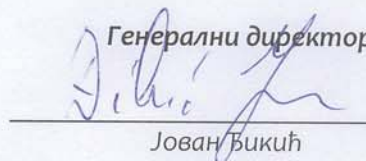 Генерални директор
Јован Ђикић